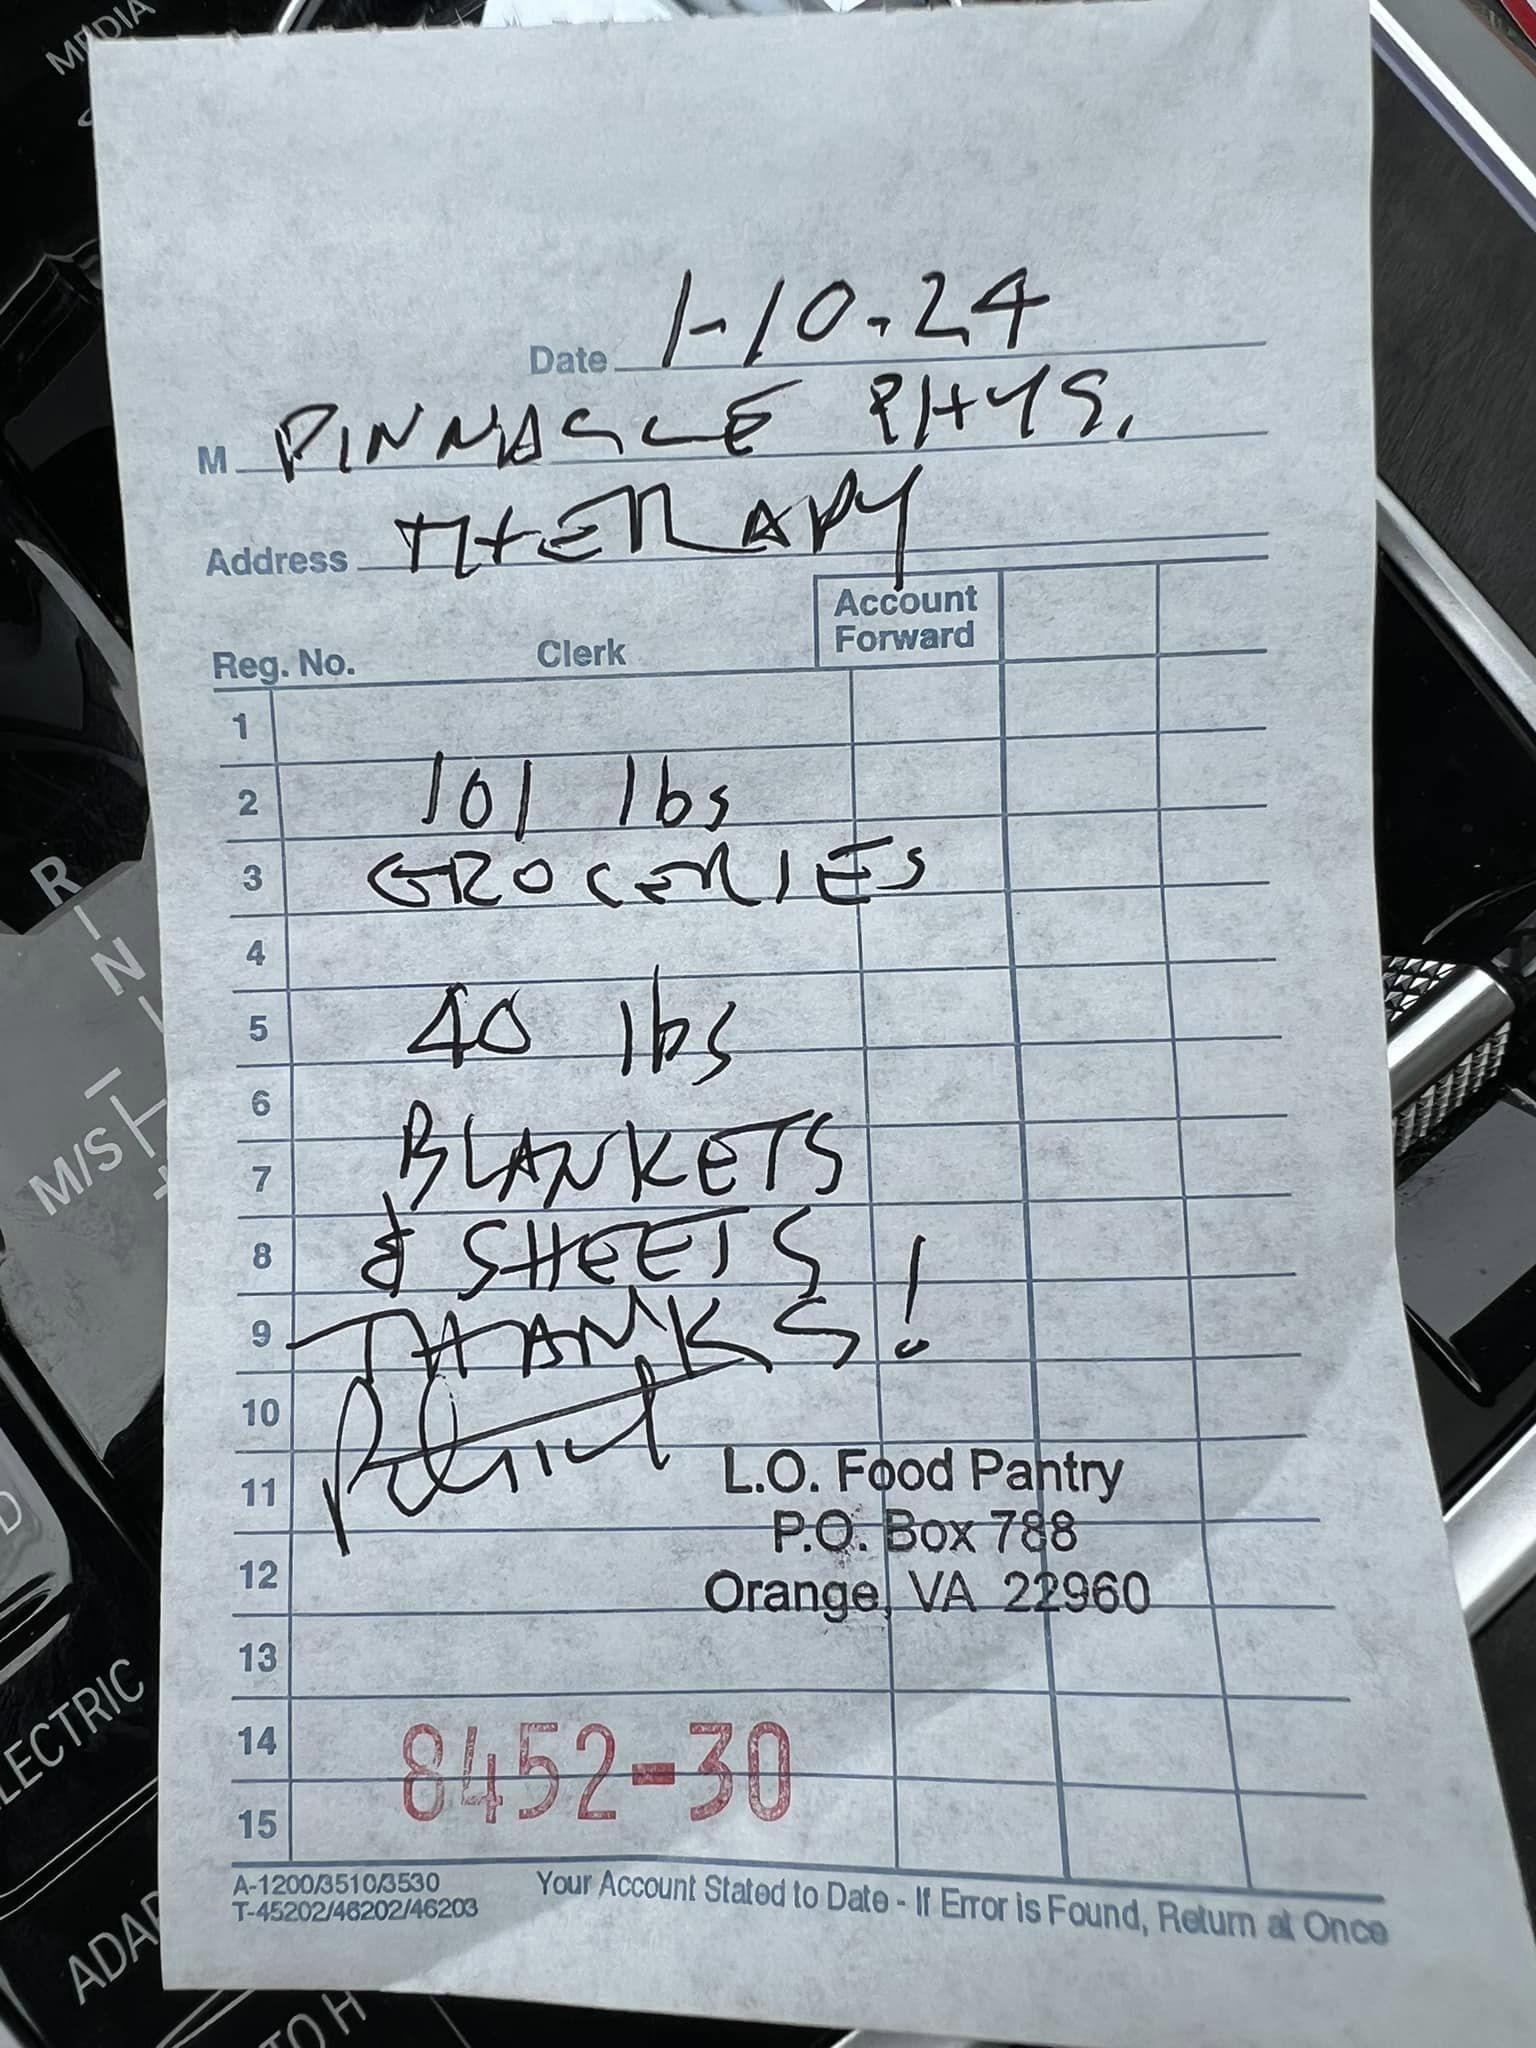 MEDIA
Date 1-10-24
M PINNACLE PHYS.
Address THERAPY
Account
Forward
Reg. No. Clerk
1
2 101 lbs
3 GROCERIES
4
5 40 lbs
6
7 BLANKETS
8 & SHEETS
9 THANKS!
10
11
L.O. Food Pantry
P.O. Box 788
12
Orange, VA 22960
13
14
8452-30
15
A-1200/3510/3530
T-45202/46202/46203
Your Account Stated to Date - If Error is Found, Return at Once
R
N
M/S
D